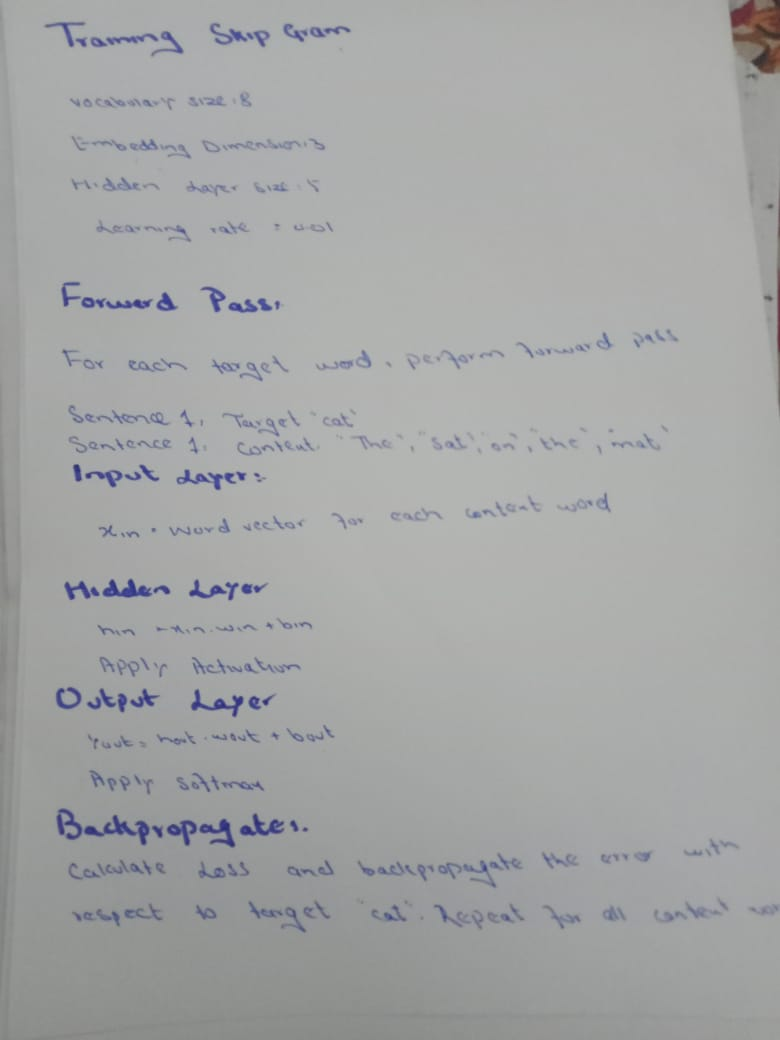 Training Skip Gram
vocabulary size : 8
Embedding Dimension : 3
Hidden Layer size : 5
Learning rate = 0.01
Forward Pass:
For each target word, perform forward pass
Sentence 1, Target "cat"
Sentence 1, Context "The", "sat", "on", "the", "mat"
Input Layer:-
xin = word vector for each context word
Hidden Layer
hin = xin.win + bin
Apply Activation
Output Layer
Yout = hout.wout + bout
Apply Softmax
Backpropagates:
Calculate Loss and backpropagate the error with
respect to target "cat". Repeat for all context